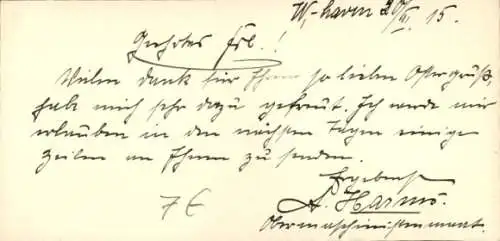 W.-haven 20/VI. 15.
Geehrtes Frl.!
Vielen dank für Ihren so lieben Ostergruß,
hab mich sehr dazu gefreut. Ich werde mir
erlauben in den nächsten Tagen einige
Zeilen an Ihnen zu senden.
Ergebenst
A. Harms.
Obermaschinistenmaat.
7 €